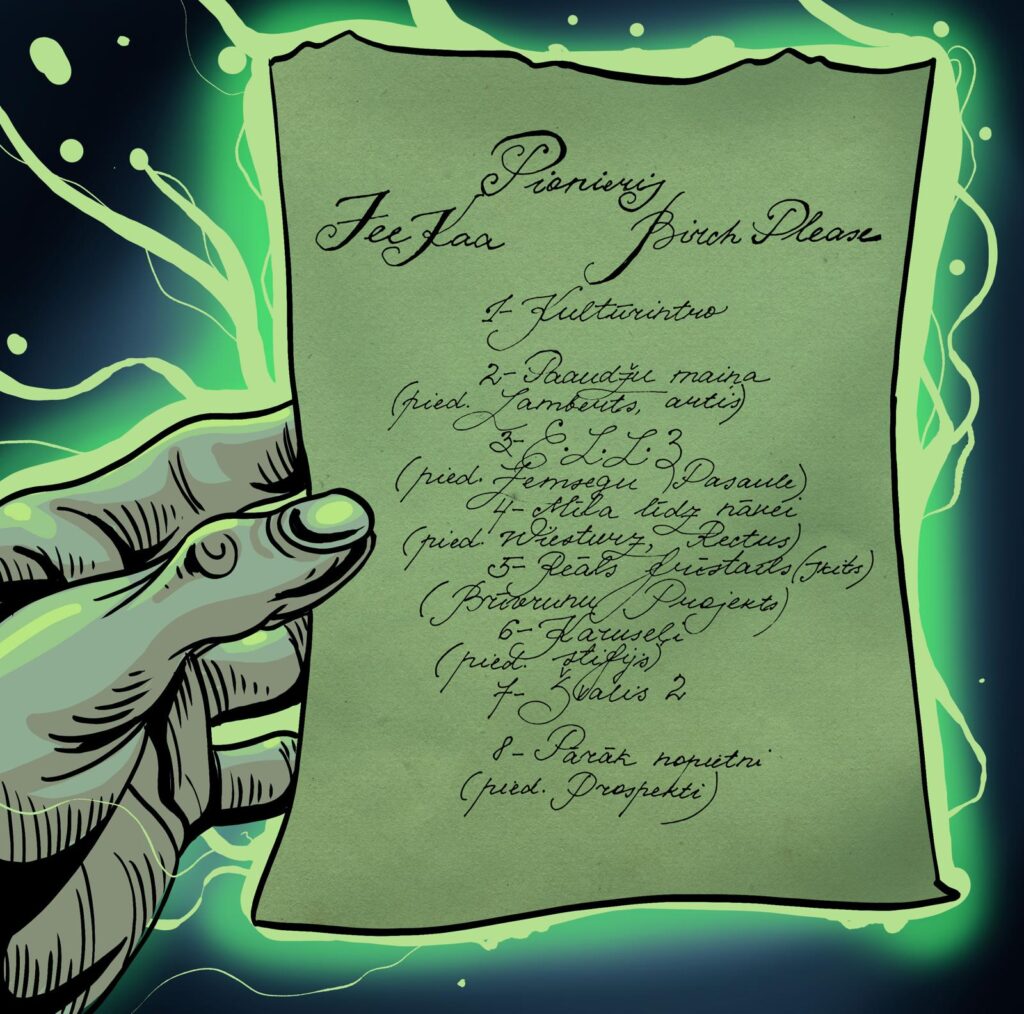 Pionieris
Jee Kaa Birch Please
1- Kultūrintro
2- Paaudžu maiņa
(pied. Lamberts, artis)
3- E.L.L.3
(pied. Jemsegu Pasaule)
4- Mīla līdz nāvei
(pied. Wiesturz, Rectus)
5- Reāls frīstails (skits)
(Brīvrunu Projekts)
6- Karuseļi
(pied. stifijs)
7- Švalis 2
8- Pārāk nopietni
(pied. Prospekti)